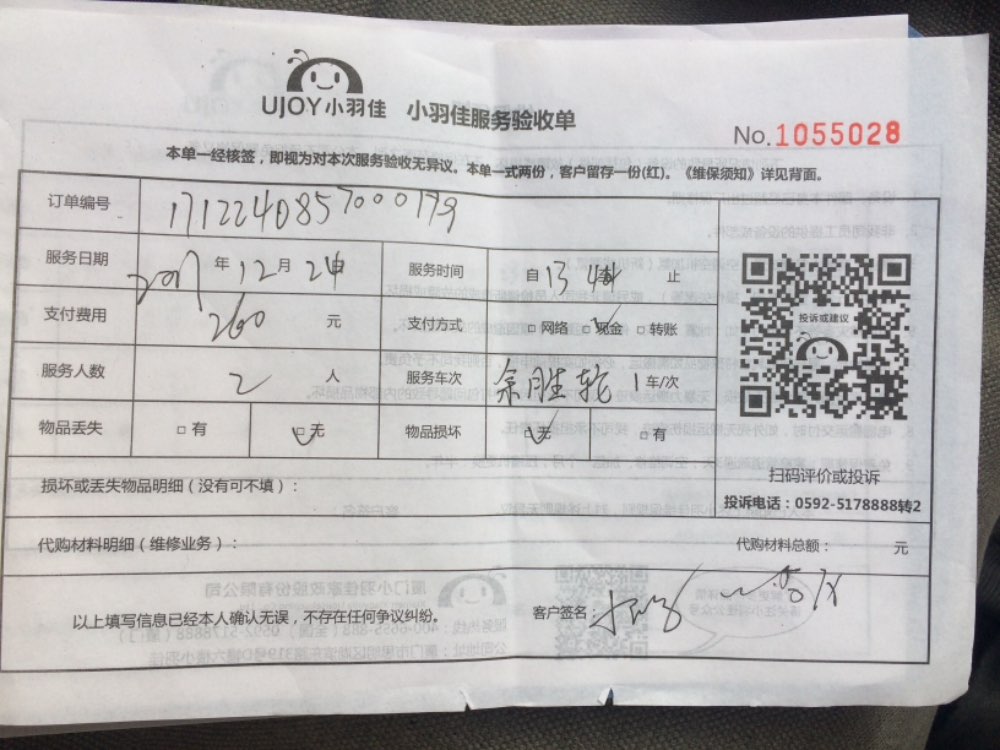 UJOY小羽佳 小羽佳服务验收单
No.1055028
本单一经核签，即视为对本次服务验收无异议。本单一式两份，客户留存一份(红)。《维保须知》详见背面。
订单编号 1712240857000179
服务日期 2017年12月24 服务时间 自13 止
支付费用 260 元 支付方式 □网络 □现金 □转账
投诉或建议
服务人数 2 人 服务车次 余胜轮 1车/次
物品丢失 □有 □无 物品损坏 □无 □有
扫码评价或投诉
损坏或丢失物品明细（没有可不填）：
投诉电话：0592-5178888转2
代购材料明细（维修业务）： 代购材料总额： 元
以上填写信息已经本人确认无误，不存在任何争议纠纷。 客户签名：